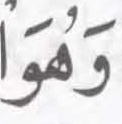 وَهُوَا